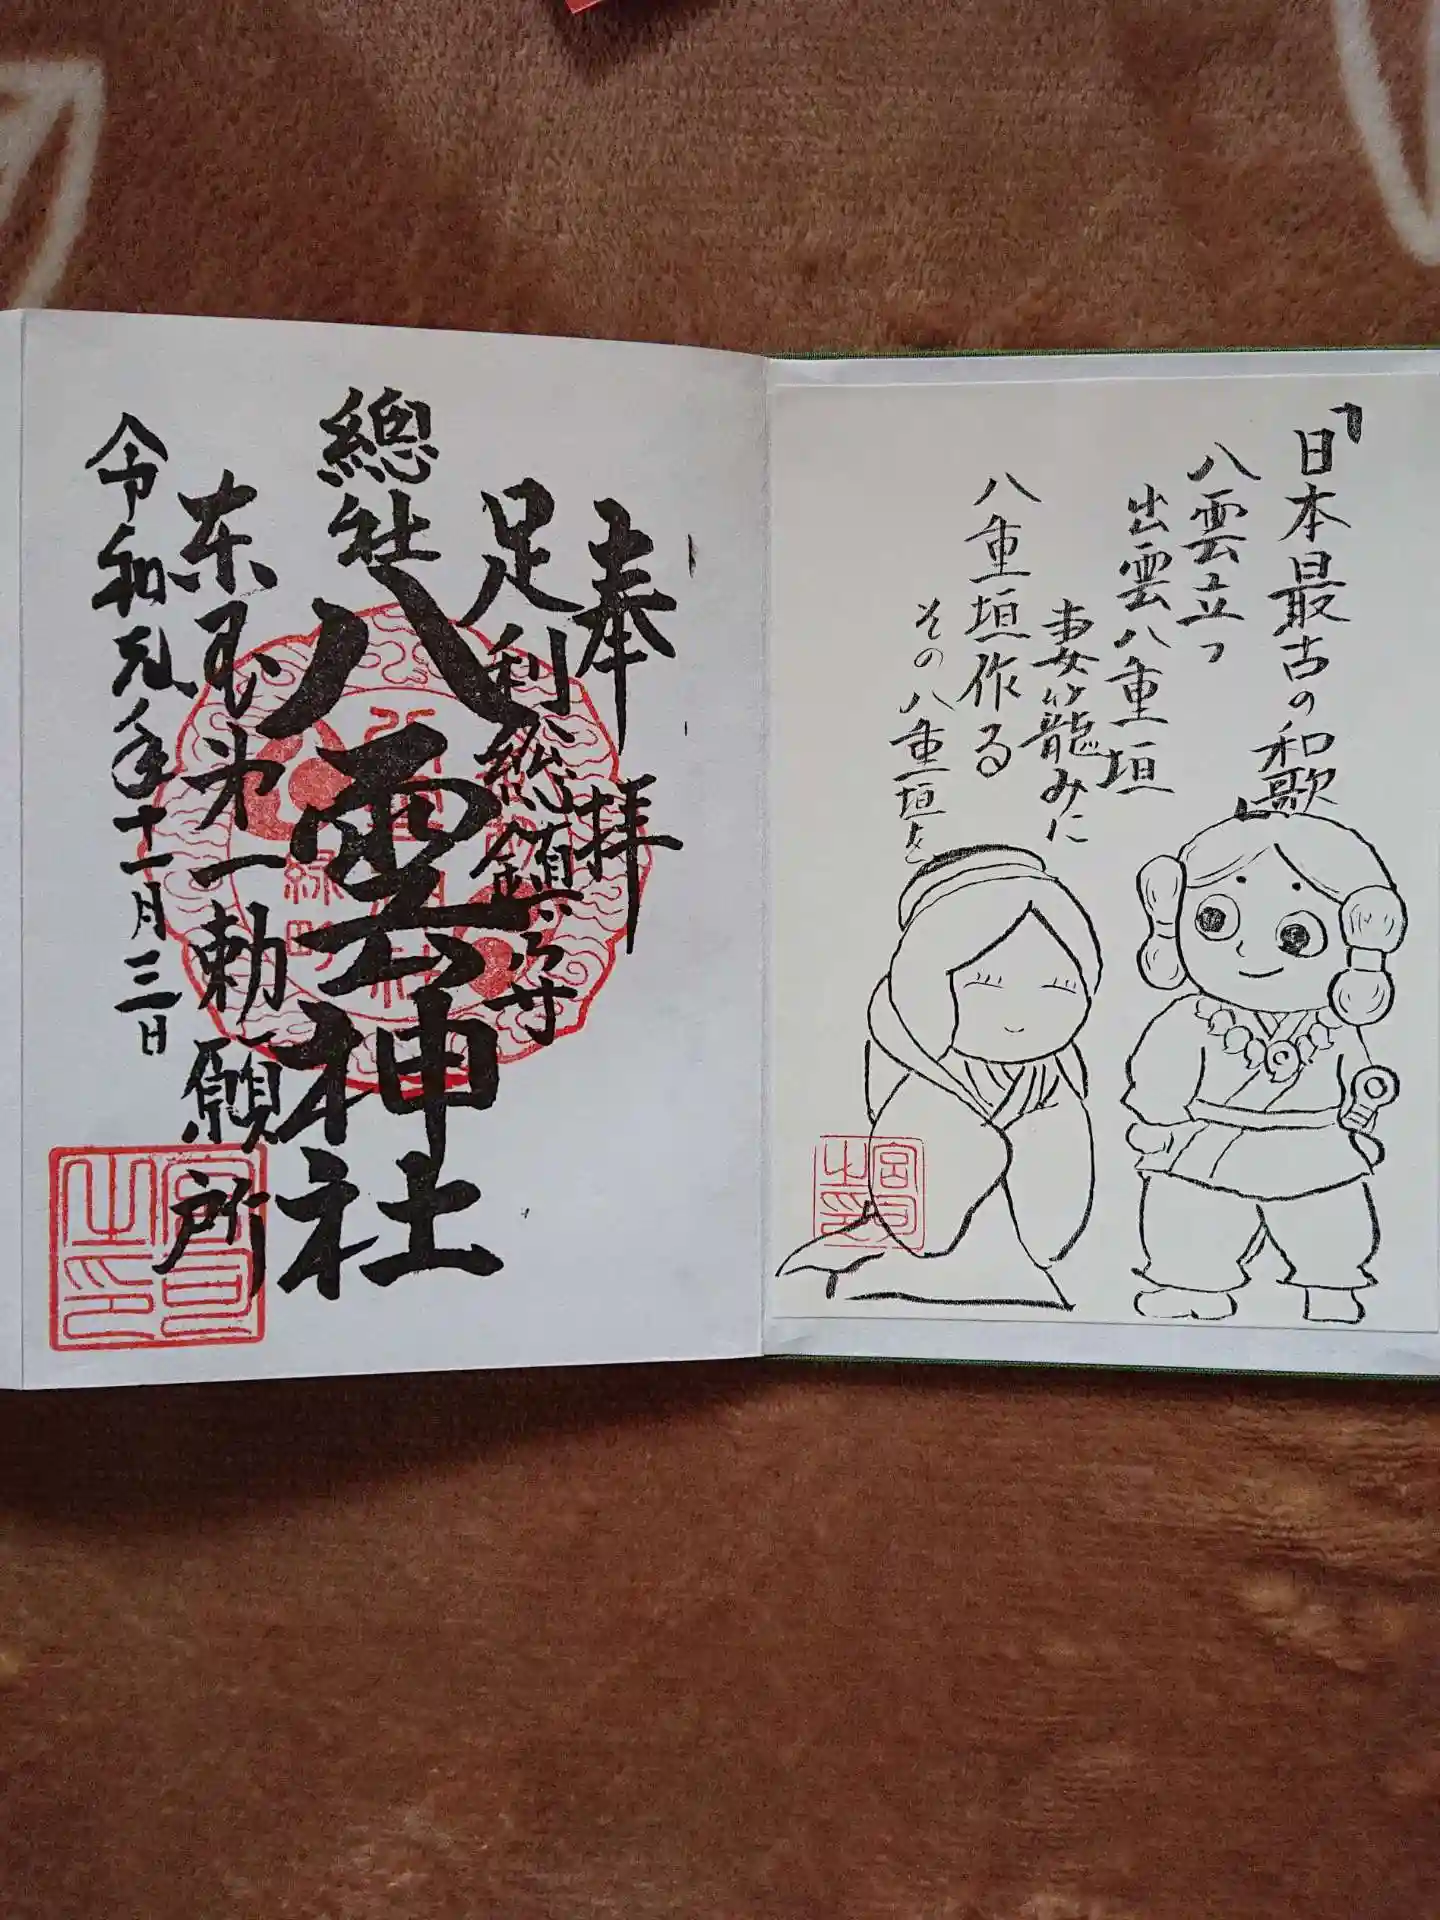 「日本最古の和歌」
八雲立つ
出雲八重垣
妻籠みに
八重垣作る
その八重垣を
奉拝
足利総鎮守
總社
八雲神社
東国第一勅願所
令和元年十一月三日
緑町
宮司之印
宮司之印